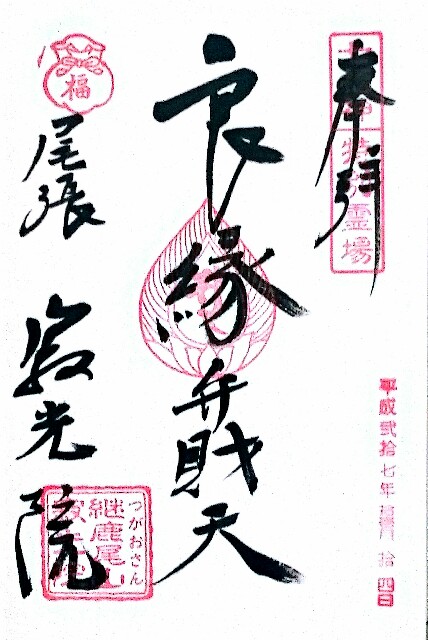 奉拝
七福神
特別霊場
平成弐拾七年
拾四日
良縁弁財天
福
尾張
寂光院
つがおさん
継鹿尾山
寂光院